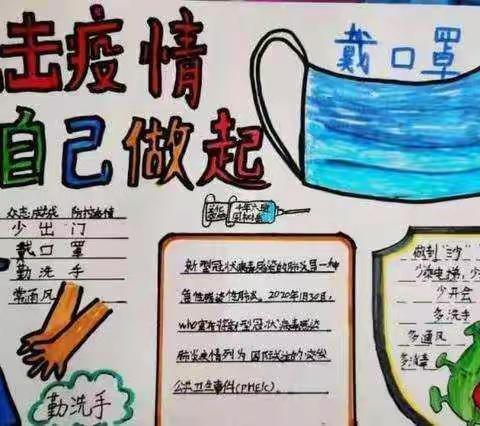 击疫情
戴口罩
自己做起
众志成城 防抗疫情
少出门
戴口罩
勤洗手
常通风
勤洗手
新型冠状病毒感染的肺炎是一种
急性感染性肺炎。2020年1月30日,
who宣布将新型冠状病毒感染
肺炎疫情列为国际关注的突发
公共卫生事件(PHEIC).
做到"三少"
少乘电梯,少
少开会
多洗手
多通风
多消